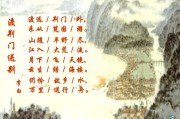 渡荆门送别
李白
渡远荆门外，
来从楚国游。
山随平野尽，
江入大荒流。
月下飞天镜，
云生结海楼。
仍怜故乡水，
万里送行舟。